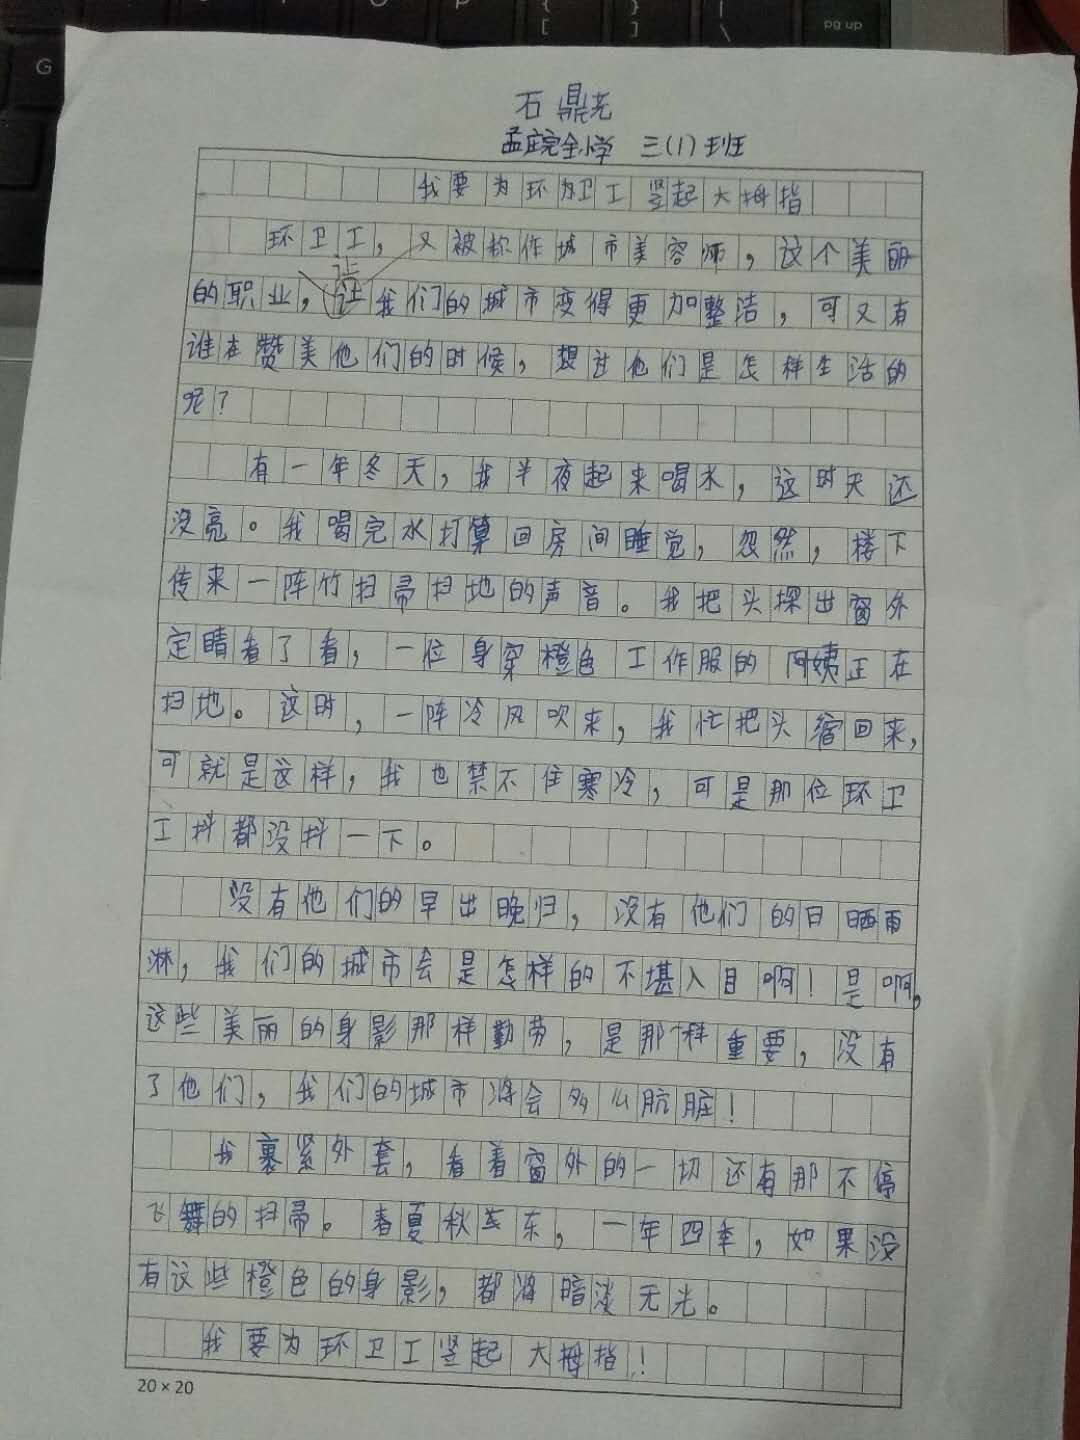 pg up
G
石鼎尧
孟庄完全小学 三(1)班
我要为环卫工竖起大拇指
环卫工，又被称作城市美容师，这个美丽
的职业，让我们的城市变得更加整洁，可又有
谁在赞美他们的时候，想过他们是怎样生活的
呢？
有一年冬天，我半夜起来喝水，这时天还
没亮。我喝完水打算回房间睡觉，忽然，楼下
传来一阵竹扫帚扫地的声音。我把头探出窗外
定睛看了看，一位身穿橙色工作服的阿姨正在
扫地。这时，一阵冷风吹来，我忙把头缩回来，
可就是这样，我也禁不住寒冷，可是那位环卫
工抖都没抖一下。
没有他们的早出晚归，没有他们的日晒雨
淋，我们的城市会是怎样的不堪入目啊！是啊，
这些美丽的身影那样勤劳，是那种重要，没有
了他们，我们的城市将会多么肮脏！
我裹紧外套，看着窗外的一切还有那不停
飞舞的扫帚。春夏秋冬，一年四季，如果没
有这些橙色的身影，都将暗淡无光。
我要为环卫工竖起大拇指！
20×20